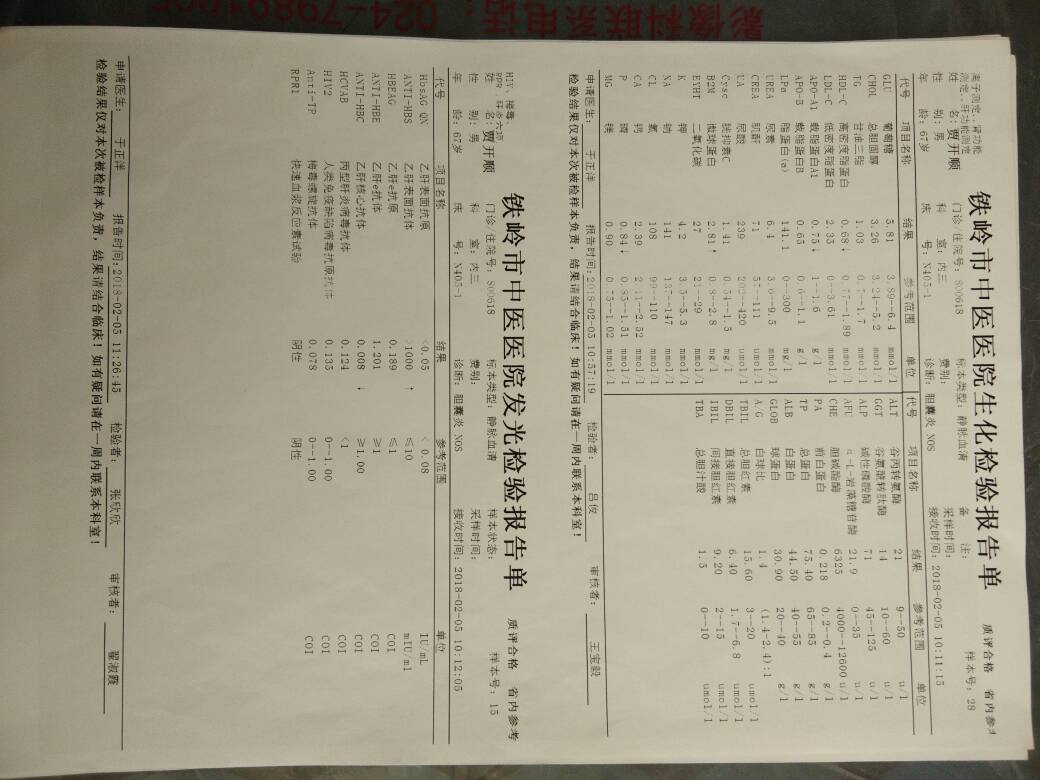 影像科联系电话：024-7989100
离子测定，肾功能
测定，肝功能测定
铁岭市中医医院生化检验报告单
质评合格 省内参考
姓 名：贾开顺 门诊/住院号：800618 标本类型：静脉血清 备 注： 样本号：28
性 别：男 科 室：内三 费别： 采样时间：
年 龄：67岁 床 号：N403-1 诊断：胆囊炎 NOS 接收时间：2018-02-05 10:11:15
代号 项目名称 结果 参考范围 单位 代号 项目名称 结果 参考范围 单位
GLU 葡萄糖 5.81 3.89--6.4 mmol/l ALT 谷丙转氨酶 21 9--50 u/l
CHOL 总胆固醇 3.26 3.24--5.2 mmol/l GGT 谷氨酰转肽酶 14 10--60 u/l
TG 甘油三脂 1.03 0.7--1.7 mmol/l ALP 碱性磷酸酶 71 45--125 u/l
HDL-C 高密度脂蛋白 0.68↓ 0.77--1.89 mmol/l AFU α-L-岩藻糖苷酶 21.9 0--35 u/l
LDL-C 低密度脂蛋白 2.35 0--3.61 mmol/l CHE 胆碱酯酶 6325 4000--12600 u/l
APO-A1 载脂蛋白A1 0.75↓ 1--1.6 g/l PA 前白蛋白 0.218 0.2--0.4 g/l
APO-B 载脂蛋白B 0.65 0.6--1.1 g/l TP 总蛋白 75.40 65--85 g/l
LPa 脂蛋白(a) 141.1 0--300 mg/l ALB 白蛋白 44.50 40--55 g/l
UREA 尿素 6.4 3.6--9.5 mmol/l GLOB 球蛋白 30.90 20--40 g/l
CREA 肌酐 71 57--111 umol/l A/G 白球比 1.4 (1.4-2.4):1
UA 尿酸 239 202--420 umol/l TBIL 总胆红素 15.60 3--20 umol/l
Cysc 胱抑素C 1.41 0.54--1.5 mg/l DBIL 直接胆红素 6.40 1.7--6.8 umol/l
B2M 微球蛋白 2.81↑ 0.8--2.8 mg/l IBIL 间接胆红素 9.20 2--15 umol/l
EYHT 二氧化碳 27 21--29 mmol/l TBA 总胆汁酸 1.5 0--10 umol/l
K 钾 4.2 3.5--5.3 mmol/l
NA 钠 141 137--147 mmol/l
CL 氯 108 99--110 mmol/l
CA 钙 2.39 2.11--2.52 mmol/l
P 磷 0.84↓ 0.85--1.51 mmol/l
MG 镁 0.90 0.75--1.02 mmol/l
申请医生： 于正洋 报告时间：2018-02-05 10:57:19 检验者： 吕俊 审核者： 王宝毅
检验结果仅对本次被检样本负责，结果请结合临床！如有疑问请在一周内联系本科室！
HIV、梅毒、
RPR、肝炎六项
铁岭市中医医院发光检验报告单
质评合格 省内参考
姓 名：贾开顺 门诊/住院号：800618 标本类型：静脉血清 样本状态： 样本号：15
性 别：男 科 室：内三 费别： 采样时间：
年 龄：67岁 床 号：N403-1 诊断：胆囊炎 NOS 接收时间：2018-02-05 10:12:05
代号 项目名称 结果 参考范围 单位
HbsAG QN 乙肝表面抗原 <0.05 < 0.08 IU/mL
ANTI-HBS 乙肝表面抗体 >1000 ↑ ≤10 mIU/ml
HBEAG 乙肝e抗原 0.189 ≤1 COI
ANTI-HBE 乙肝e抗体 1.201 ≥1 COI
ANTI-HBC 乙肝核心抗体 0.008 ↓ ≥1.00 COI
HCVAB 丙型肝炎病毒抗体 0.124 <1 COI
HIV2 人类免疫缺陷病毒抗原抗体 0.135 0--1.00 COI
Anti-TP 梅毒螺旋抗体 0.078 0--1.00 COI
RPR1 快速血浆反应素试验 阴性 阴性
申请医生： 于正洋 报告时间：2018-02-05 11:26:45 检验者： 张欣欣 审核者： 翟淑霞
检验结果仅对本次被检样本负责，结果请结合临床！如有疑问请在一周内联系本科室！